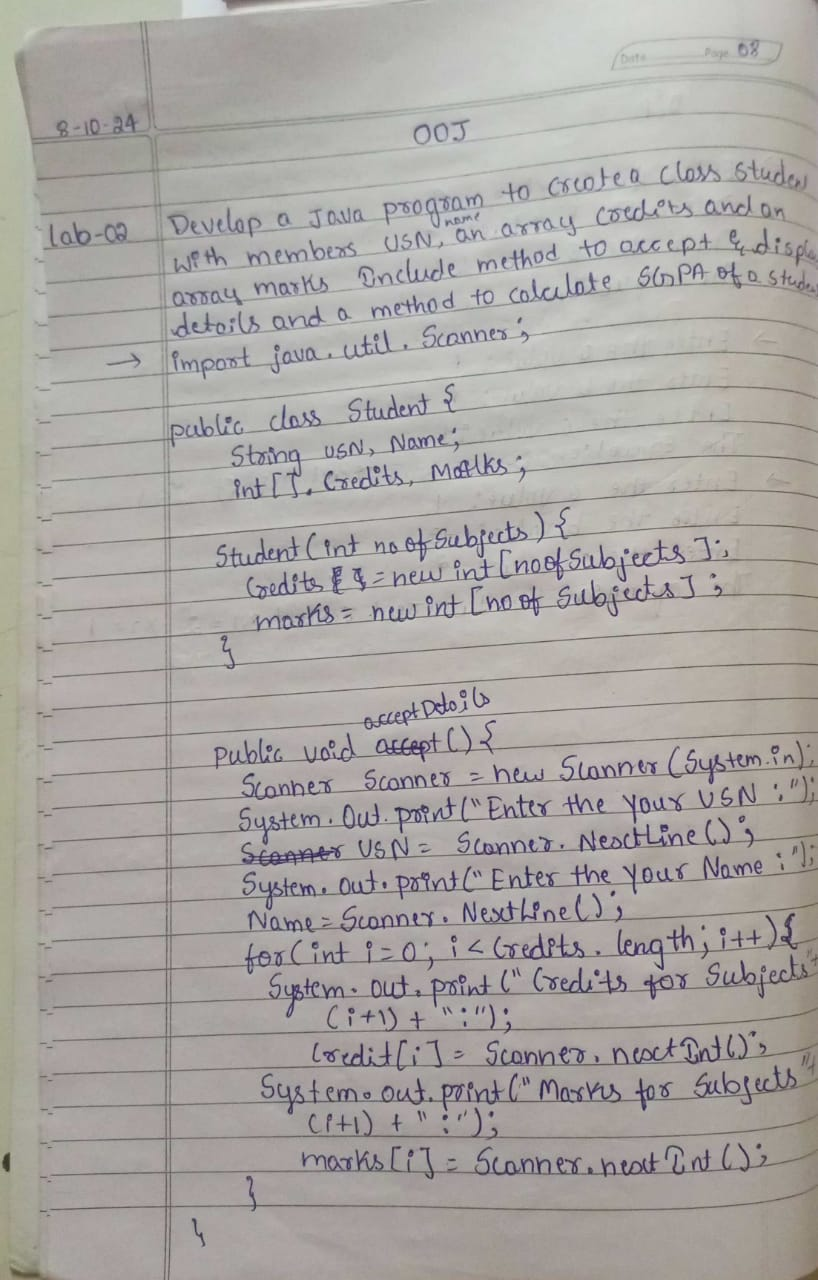 Date Page 08
8-10-24
OOJ
Lab-02 Develop a Java program to create a class Student
with members USN, name an array credits and an
array marks Include method to accept & display
details and a method to calculate SGPA of a student
→ import java.util.Scanner;
public class Student {
String USN, Name;
int[]. Credits, Marks;
Student (int noofSubjects) {
Credits = new int [noofSubjects];
marks = new int [noofSubjects];
}
public void acceptDetails () {
Scanner Scanner = new Scanner (System.in);
System.Out.print("Enter the your USN :");
USN = Scanner.NextLine();
System.out.print("Enter the your Name :");
Name = Scanner.NextLine();
for(int i=0; i<Credits.length; i++){
System.out.print("Credits for Subjects"+
(i+1) + ":");
Credit[i] = Scanner.nextInt();
System.out.print("Marks for Subjects"+
(i+1) + ":");
marks[i] = Scanner.nextInt();
}
}